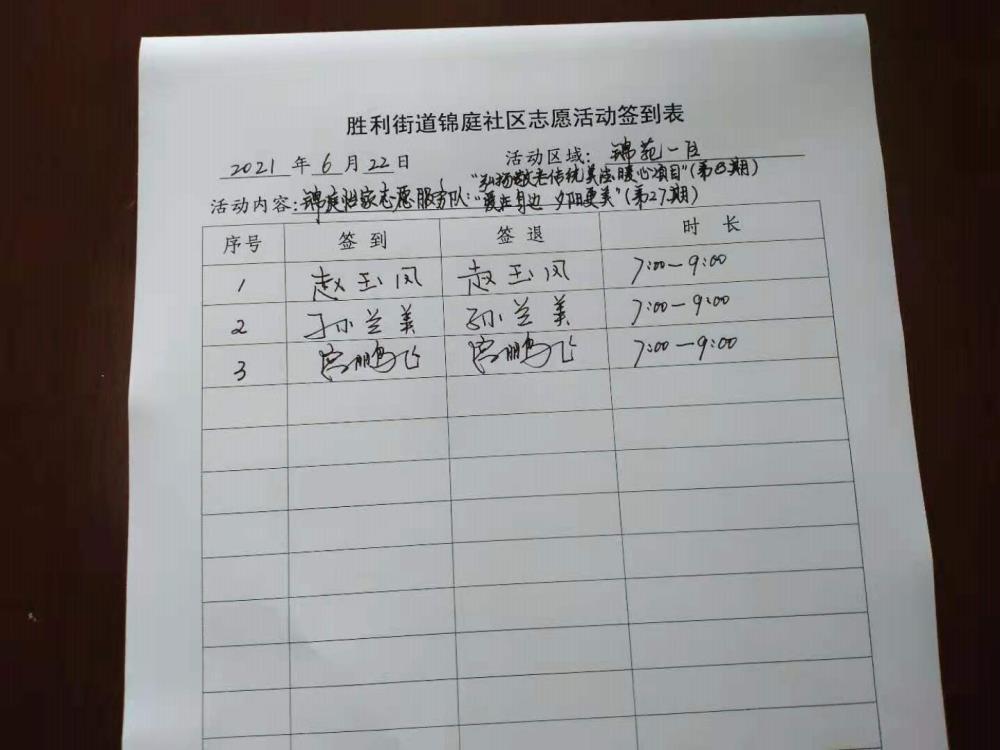 胜利街道锦庭社区志愿活动签到表
2021 年 6 月 22 日 活动区域: 锦苑一区
"弘扬敬老传统美德暖心项目"(第8期)
活动内容:锦庭怡家志愿服务队:"爱在身边 夕阳更美"(第27期)
序号 签到 签退 时 长
1 赵玉凤 赵玉凤 7:00—9:00
2 孙兰美 孙兰美 7:00—9:00
3 宫鹏飞 宫鹏飞 7:00—9:00